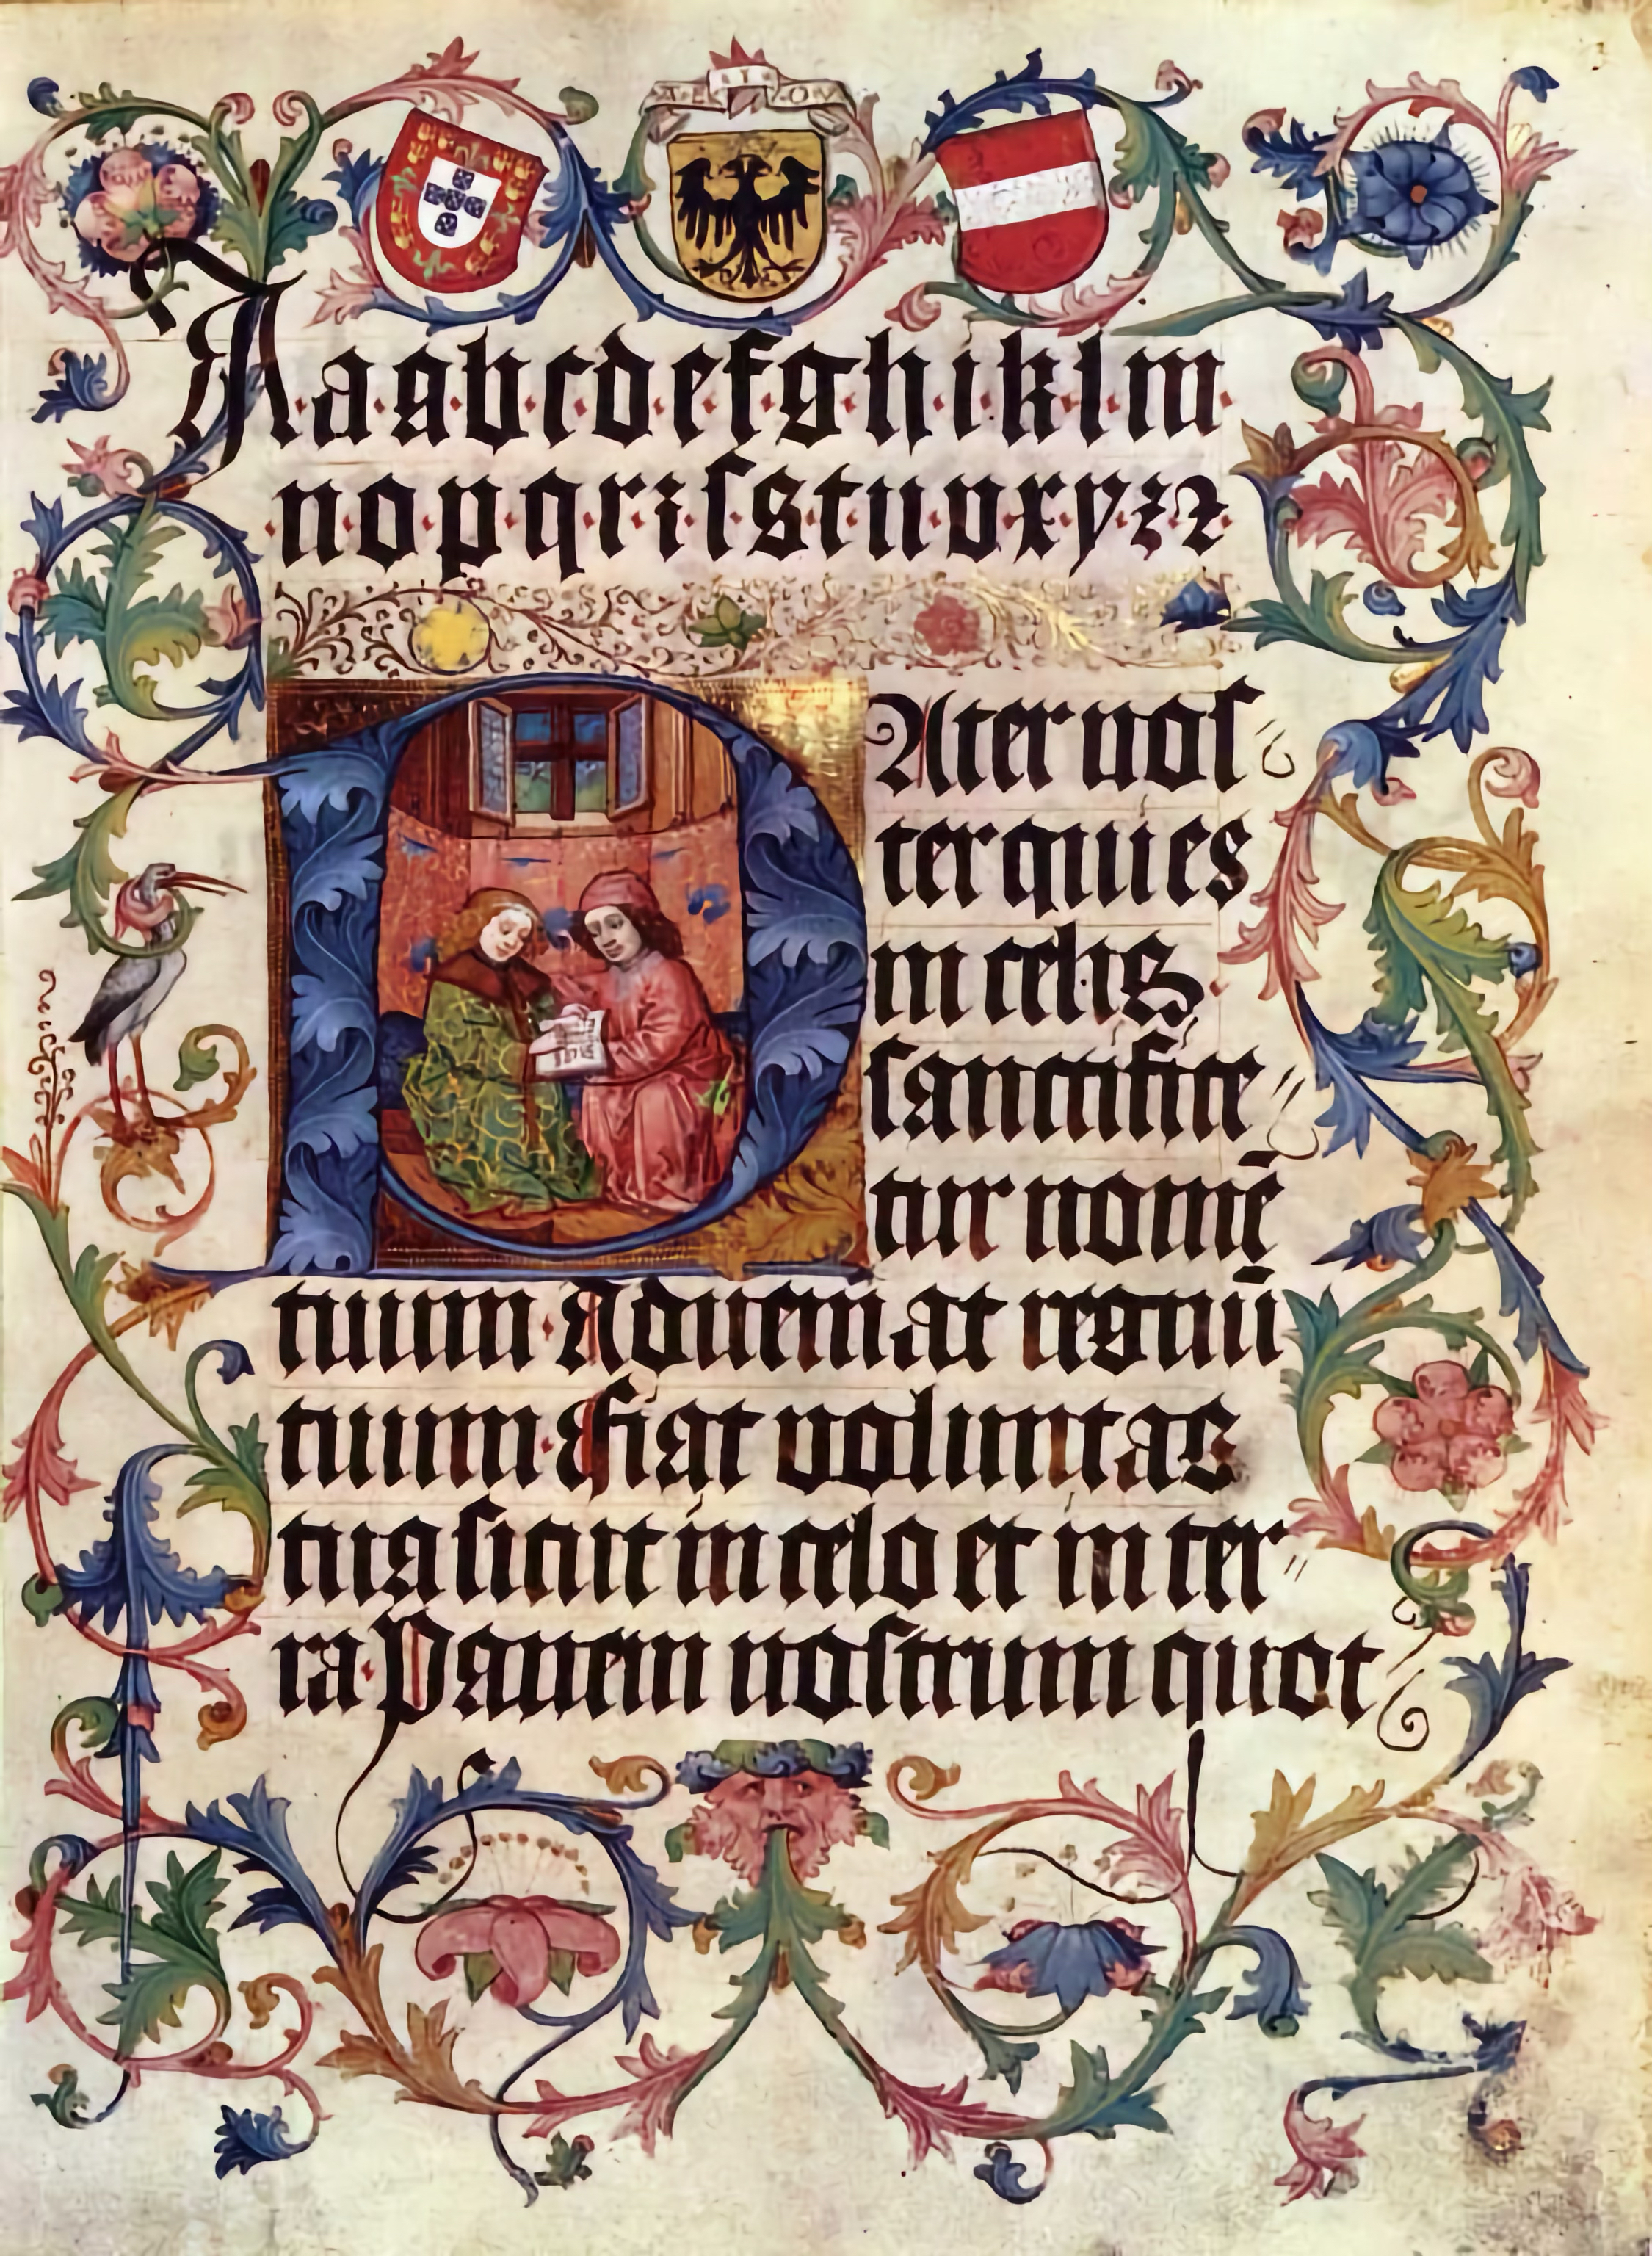 A E I O V
A a a b c d e f g h i k l m
n o p q r ꝛ ſ s t u v x y z ⁊
PAter noſ
ter qui es
in celis
ſanctifice
tur nomē
tuum Adueniat regnū
tuum Fiat voluntas
tua ſicut in celo et in ter
ra Panem noſtrum quot